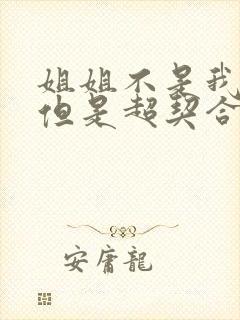 姐姐不是我
但是超契合
安庸龍